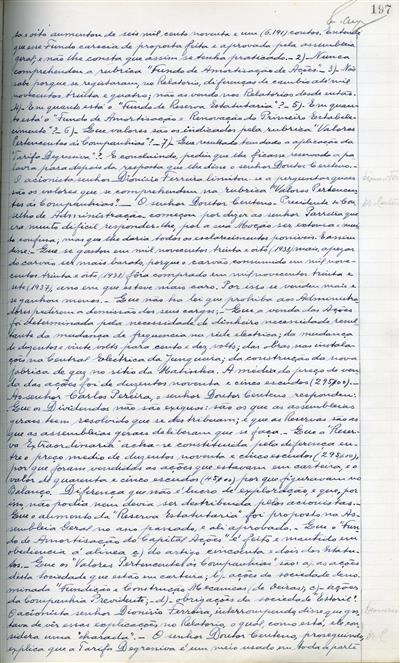 197
tas oito aumentou de seis mil cento noventa e um (6.191) contos. Entende
que esse Fundo carecia de proposta feita e aprovada pela assembleia
geral, e não lhe consta que assim se tenha praticado. - 2) - Nunca
comprehendeu a rubrica "Fundo de Amortisação de Acções". 3) - Não
sabe porque se registaram, no Relatorio, diferenças de cambio até mil
novecentos trinta e quatro; não as vendo nos Relatorios desde então.
4) - Em quanto está o "Fundo de Reserva Estatutaria"? - 5) - Em quan-
to está o "Fundo de Amortisação e Renovação do Primeiro Estabele-
cimento"? - 6) - Que valores são os indicados pela rubrica "Valores
Pertencentes ás Companhias"? - 7) - Que resultado tem dado a applicação da
Tarifa Degressiva? E concluindo, pediu que lhe ficasse reservada a pa-
lavra para depois da resposta que lhe désse o senhor Doutor Centeno.
O acionista senhor Dionisio Ferreira limitou-se a perguntar quaes
são os valores que se comprehendem na rubrica "Valores Pertencen-
tes ás Companhias". - O senhor Doutor Centeno - Presidente do Con-
selho de Administração, começou por dizer ao senhor Parreira que
era muito dificil responder-lhe, por a sua Moção ser extensa e mui-
to confusa; mas que lhe daria todos os esclarecimentos possiveis. E assim
disse: - Que se gastou em mil novecentos trinta e oito (1938) mais, apesar
do carvão ser mais barato, porque o carvão consumido em mil nove-
centos trinta e oito (1938) fôra comprado em mil novecentos trinta e
sete (1937), ano em que esteve mais caro. Por isso se vendeu mais e
se ganhou menos. - Que não ha lei que prohiba aos Administra-
dores pedirem a demissão dos seus cargos; - Que a venda das Acções
foi determinada pela necessidade de dinheiro, necessidade resul-
tante da mudança de frequencia na rêde electrica; da mudança
de duzentos vinte volts para cento e dez volts; das obras nas instala-
ções na Central Electrica da Junqueira; da construção da nova
fabrica de gaz no sitio da Matinha. A média do preço da ven-
da das acções foi de duzentos noventa e cinco escudos (295$00). -
Ao senhor Carlos Pereira, o senhor Doutor Centeno respondeu:
Que os Dividendos não são exiguos: são os que as assembleias
geraes teem resolvido que se distribuam; e que as Reservas são as
que as assembleias geraes deliberam que se faça. - Que a "Reser-
va Extraordinaria" acha-se constituida pela diferença en-
tre o preço médio de duzentos noventa e cinco escudos (295$00),
por que foram vendidas as acções que estavam em carteira, e o
valor de quarenta e cinco escudos (45$00) por que figuravam no
Balanço. Diferença que não é lucro de exploração e que, por
isso, não podia nem devia ser distribuida pelos acionistas. -
Que o aumento da "Reserva Estatutaria" foi proposto na As-
sembleia Geral no ano passado, e ali aprovado. - Que o "Fun-
do de Amortisação do Capital Acções" é feito e mantido em
obediencia á alinea c) do artigo cincoenta e dois dos Estatu-
tos. - Que os "Valores Pertencentes ás Companhias" são: a) as acções
desta sociedade que estão em carteira; b) - acções da sociedade deno-
minada "Fundição e Construções Mecanicas, de Oeiras); c) - acções
da Companhia Previdente; d) - obrigações da sociedade "Estoril".
O acionista senhor Dionisio Ferreira, interrompendo disse que gos-
tava de vêr essas explicações no Relatorio, o qual, como está, ele con-
sidera uma "charada". - O senhor Doutor Centeno, proseguindo,
explica que a Tarifa Degressiva é um meio usado em toda a parte